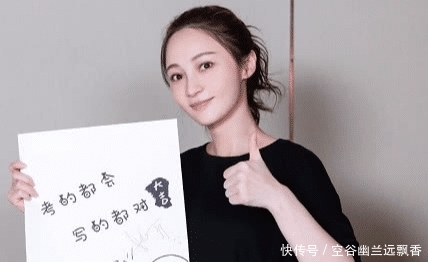 考的都会
写的都对
大吉
快传号/空谷幽兰远飘香